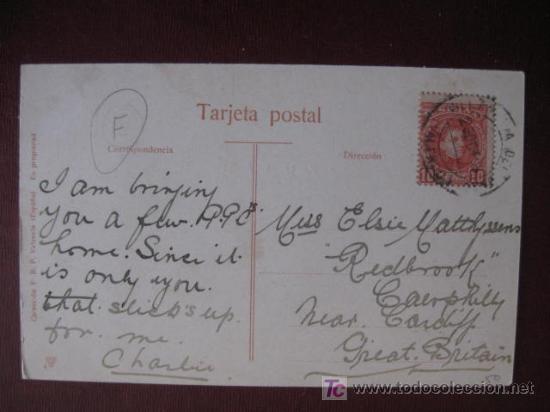 F
Tarjeta postal
Correspondencia
Dirección
10 10
I am bringing
you a few P.P.C's
home. Since it
is only you.
that sticks up
for me.
Charlie
Miss Elsie Matthyssens
"Redbrook"
Caerphilly
Near Cardiff
Great Britain
Valencia (España) En propiedad
TC www.todocoleccion.net